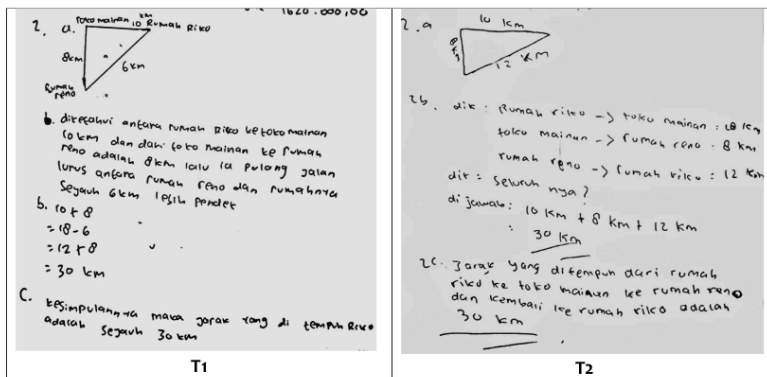 1620.000,00
2. a. toko mainan 10 km Rumah Riko
8km
6km
Rumah reno
b. diketahui antara rumah Riko ke toko mainan
10 km dan dari toko mainan ke rumah
reno adalah 8km lalu ia pulang jalan
lurus antara rumah reno dan rumahnya
sejauh 6km lebih pendek
b. 10 + 8
= 18 - 6
= 12 + 8
= 30 km
C. kesimpulannya maka jarak yang di tempuh Riko
adalah sejauh 30 km
T1
2. a
10 km
8 km
12 km
2b. dik : Rumah riko -> toko mainan : 10 km
toko mainan -> rumah reno : 8 km
rumah reno -> rumah riko : 12 km
dit = seluruh nya?
di jawab : 10 km + 8 km + 12 km
: 30 km
2c. Jarak yang ditempuh dari rumah
riko ke toko mainan ke rumah reno
dan kembali ke rumah riko adalah
30 km
T2